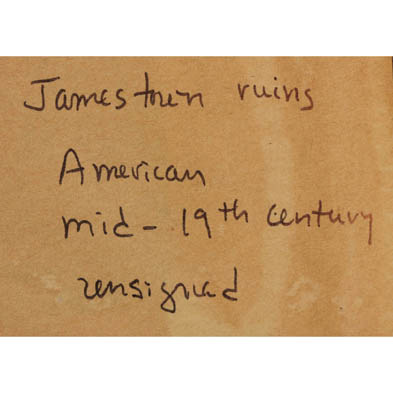 Jamestown ruins
American
mid-19th century
unsigned